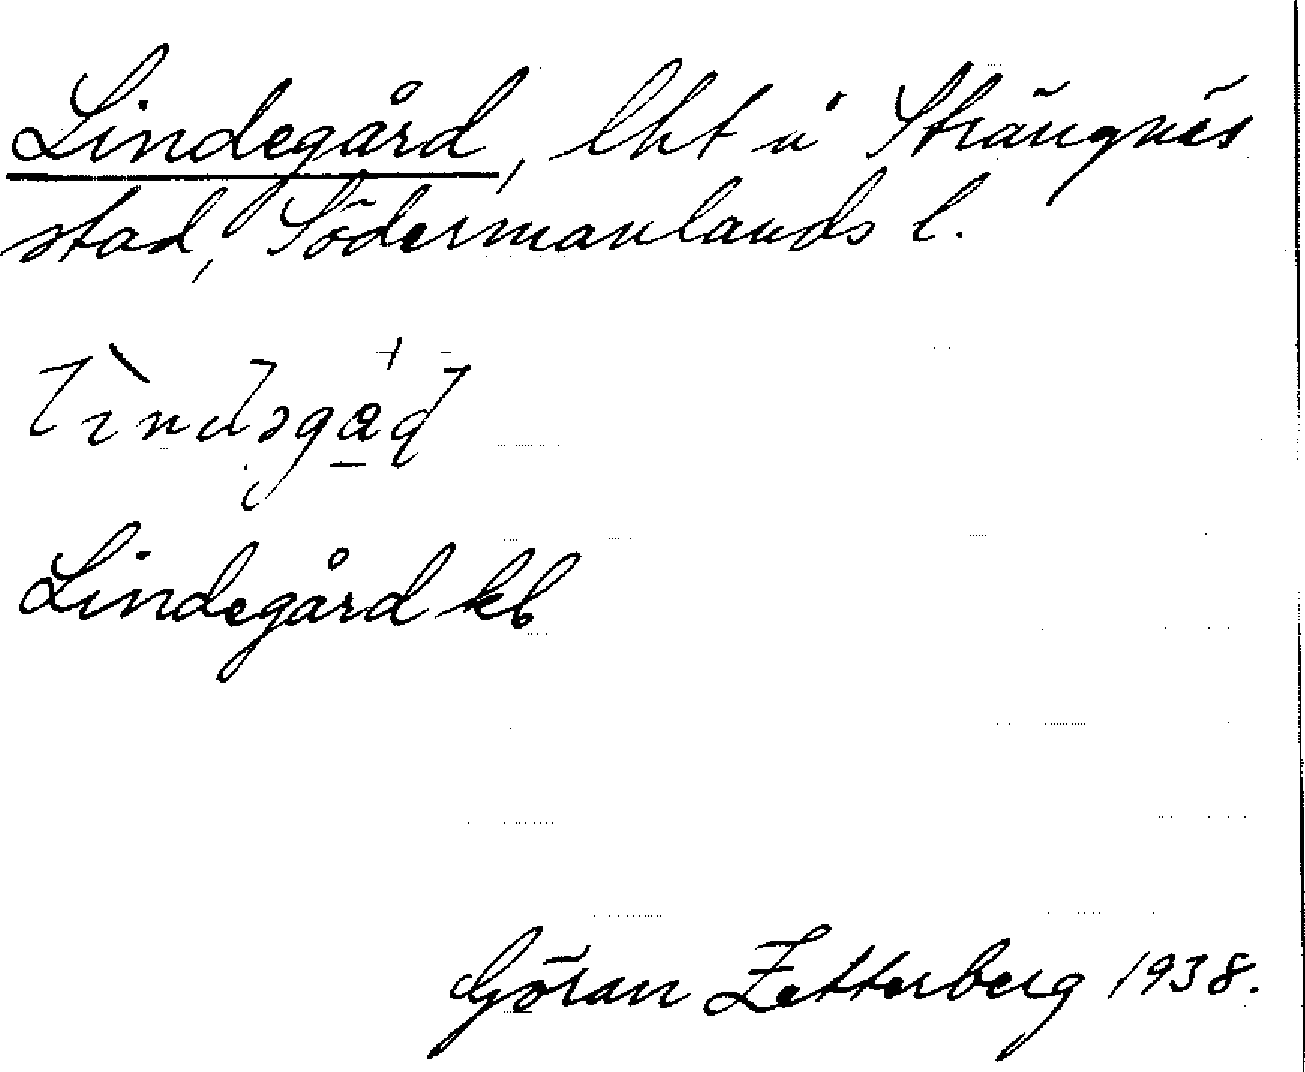 Lindegård, lht i Strängnäs
stad, Södermanlands l.
Lindegård kb
Göran Zetterberg 1938.